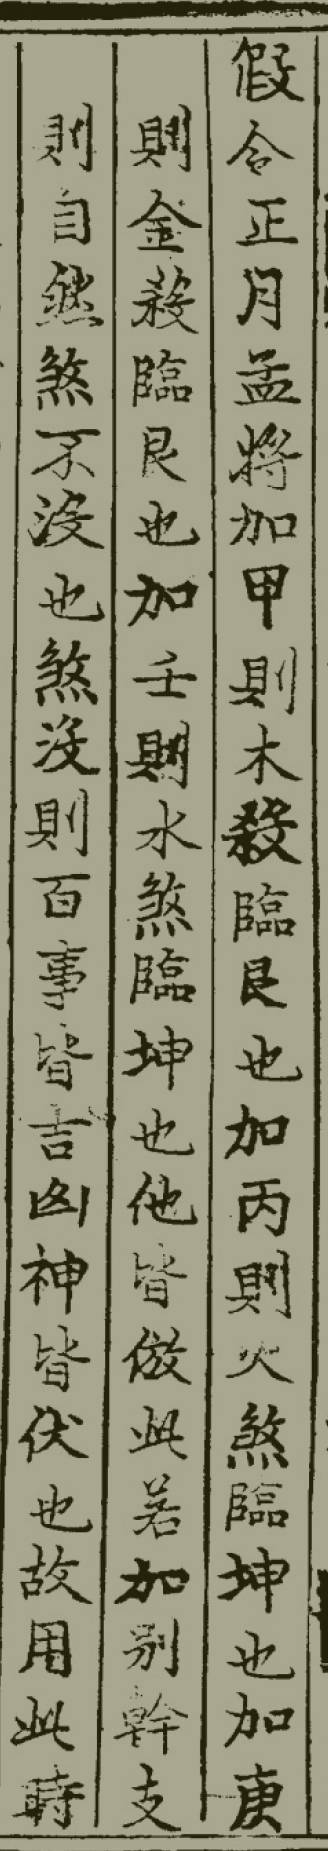 假令正月孟将加甲則木殺臨艮也加丙則火煞臨坤也加庚
則金殺臨艮也加壬則水煞臨坤也他皆倣此若加别幹支
則自然煞不没也煞没則百事皆吉凶神皆伏也故用此時